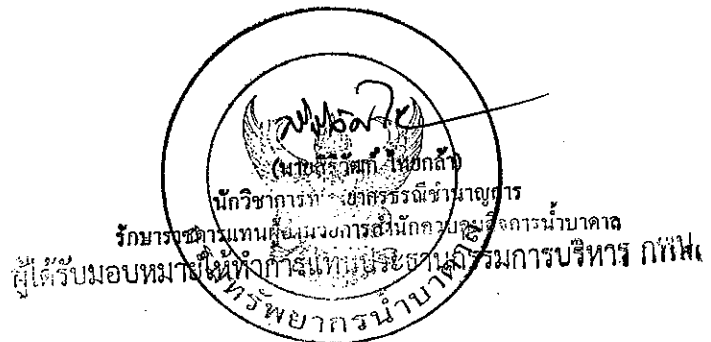 (นายสิริวัฒก์ ไทยกล้า)
นักวิชาการทรัพยากรธรณีชำนาญการ
รักษาราชการแทนผู้อำนวยการสำนักควบคุมกิจการน้ำบาดาล
ผู้ได้รับมอบหมายให้ทำการแทนประธานกรรมการบริหาร
ทรัพยากรน้ำบาดาล